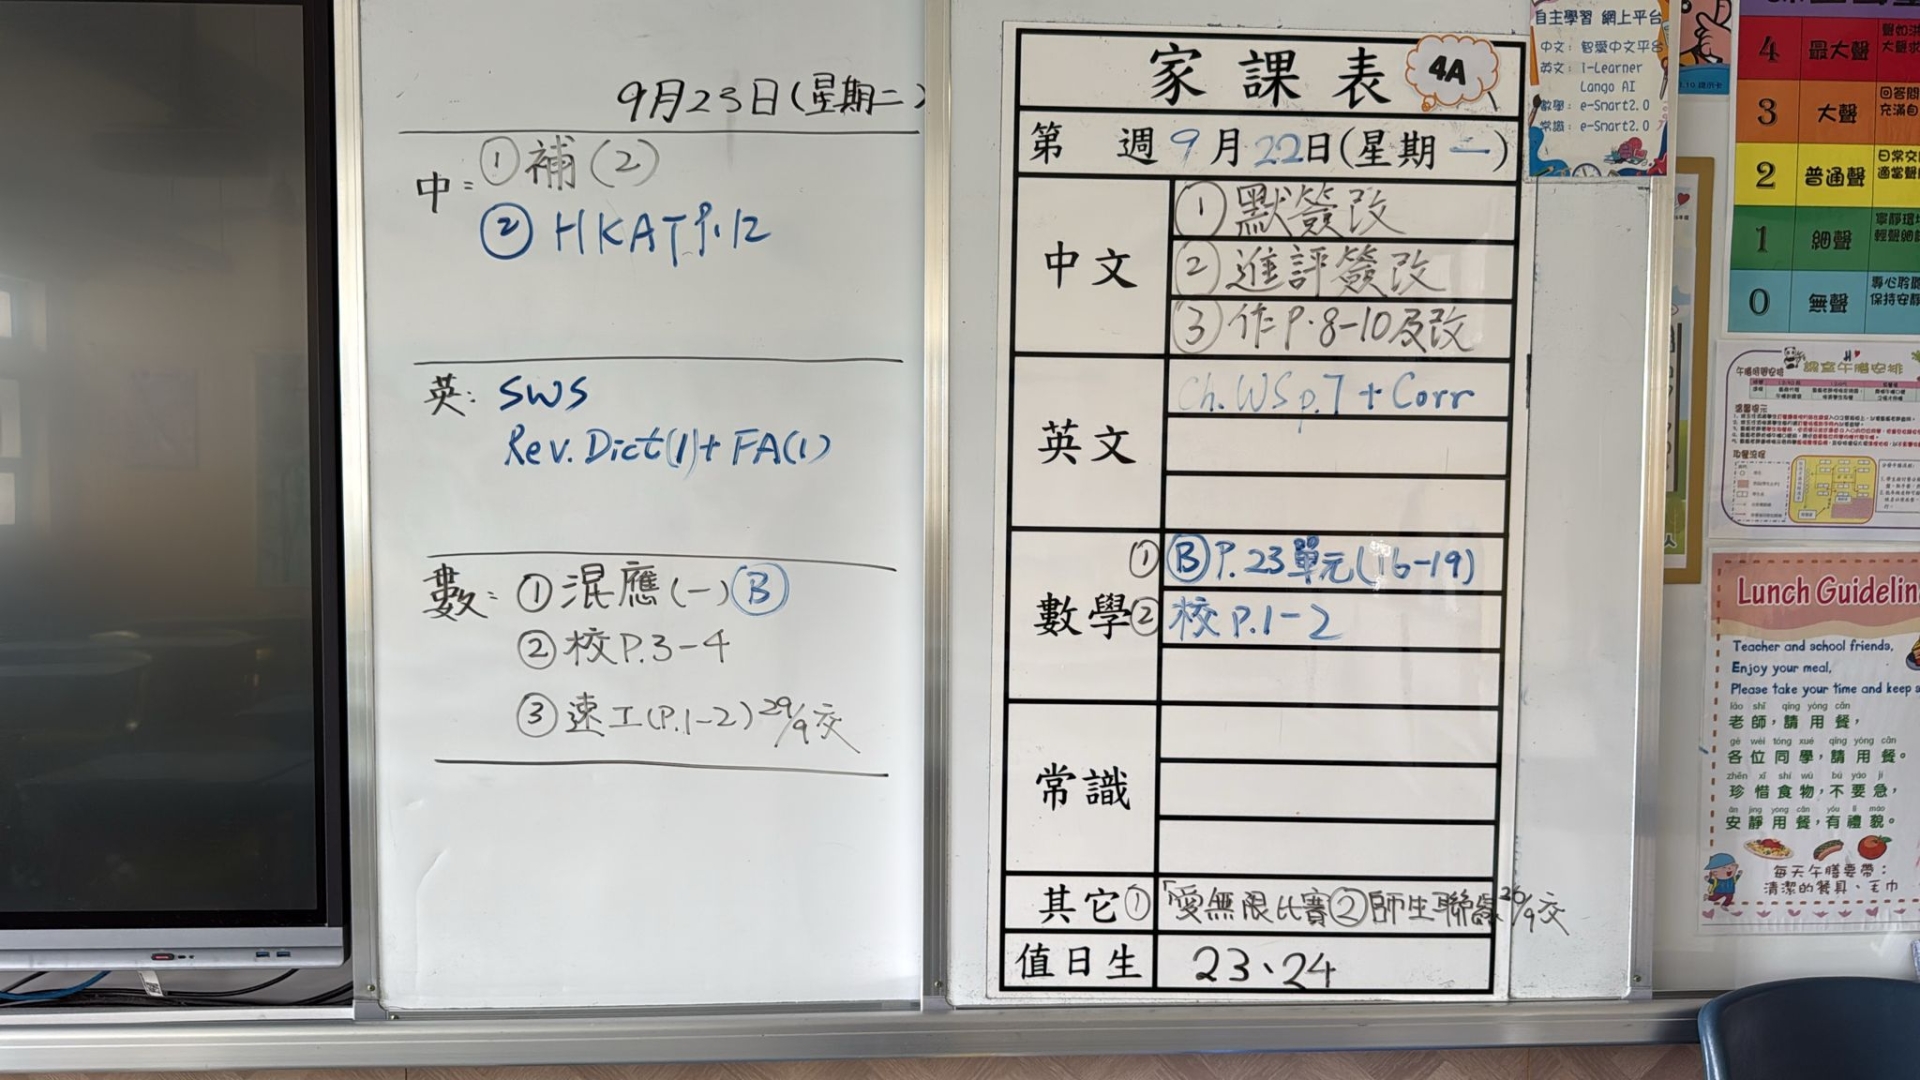 9月23日(星期二)
中: ①補(2)
②HKAT P.12
英: SWS
Rev. Dict(1)+ FA(1)
數: ①混應(一)Ⓑ
②校P.3-4
③速工(P.1-2) 29/9交
家課表 4A
第 週 9月22日(星期一)
中文
①默簽改
②進評簽改
③作P.8-10及改
英文
Ch.WS p.7 + Corr
數學
①ⒷP.23單元(16-19)
②校P.1-2
常識
其它 ①「愛無限比賽②師生聯 26/9交
值日生 23、24
自主學習 網上平台
中文: 智愛中文平台
英文: I-Learner
Lango AI
數學: e-Smart2.0
常識: e-Smart2.0
4 最大聲
3 大聲
2 普通聲
1 細聲
0 無聲
課室午膳安排
Lunch Guidelin
Teacher and school friends,
Enjoy your meal,
Please take your time and keep
lǎo shī qǐng yòng cān
老師,請用餐,
gè wèi tóng xué qǐng yòng cān
各位同學,請用餐。
zhēn xī shí wù bú yào jí
珍惜食物,不要急,
ān jìng yòng cān yǒu lǐ mào
安靜用餐,有禮貌。
每天午膳要帶:
清潔的餐具、毛巾